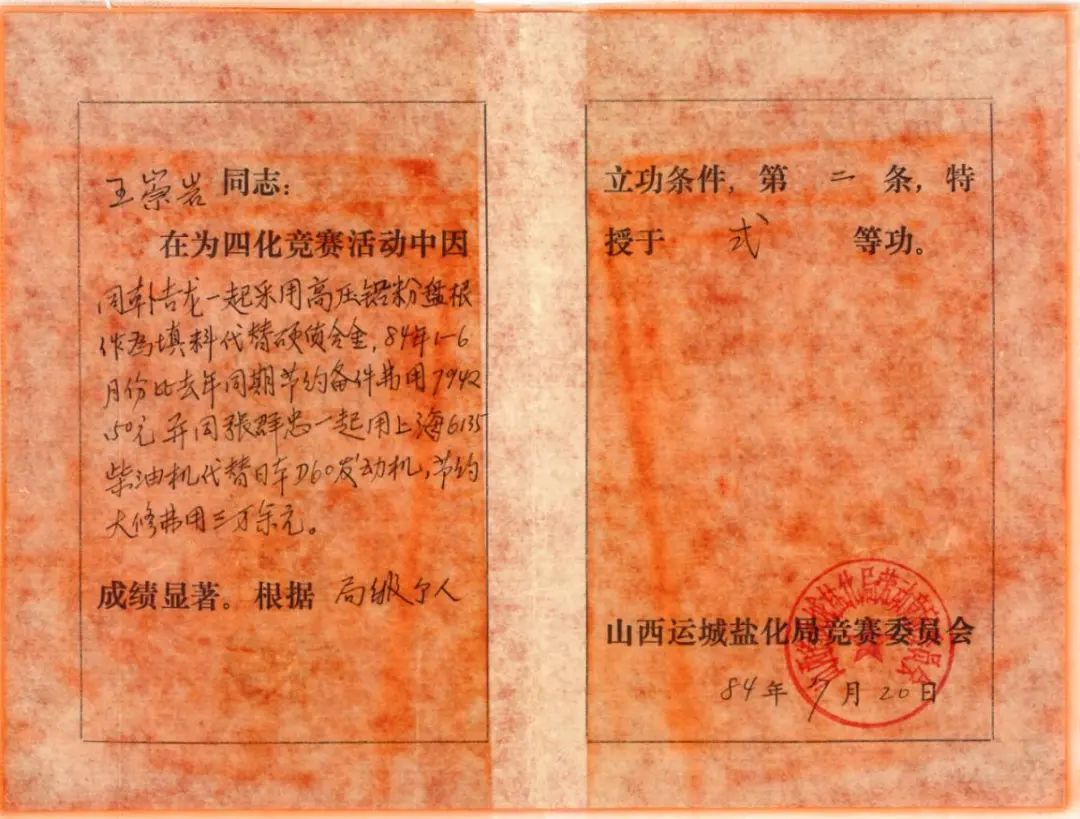 王崇岩 同志：
在为四化竞赛活动中因
同卦吉龙一起采用高压铝粉盘根
作为填料代替硬质合金，84年1-6
月份比去年同期节约备件费用7942
.50元 并同张群忠一起用上海6135
柴油机代替日车D60发动机，节约
大修费用三万余元。
成绩显著。根据 局级个人
立功条件，第 二 条，特
授于 弍 等功。
山西运城盐化局竞赛委员会
84年7月20日